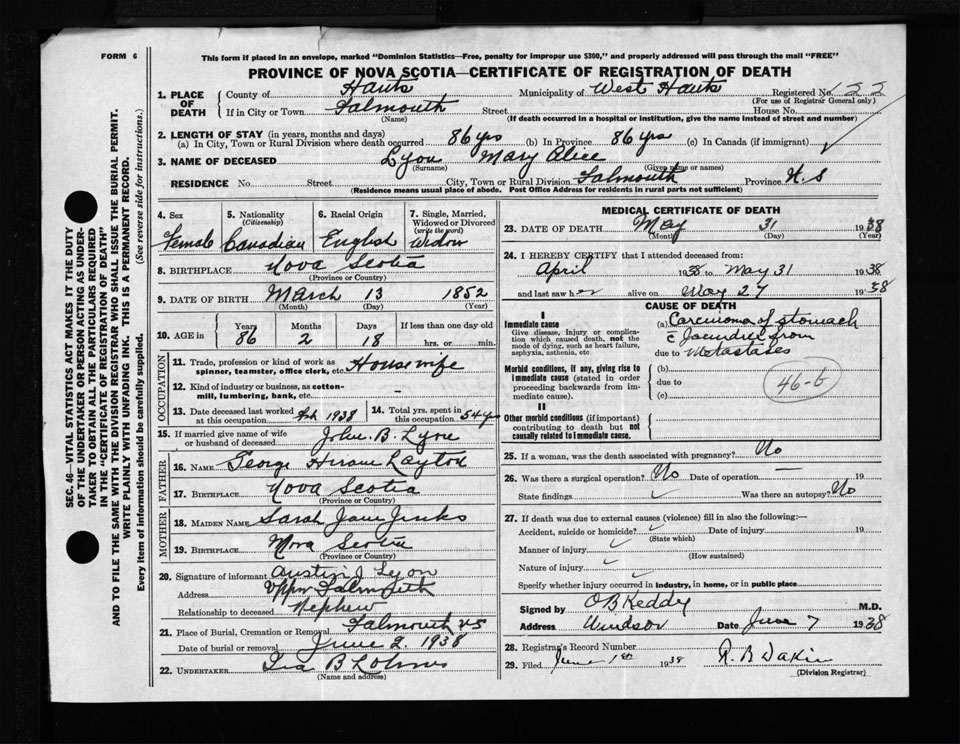 FORM 6
This form if placed in an envelope, marked "Dominion Statistics—Free, penalty for improper use $300," and properly addressed will pass through the mail "FREE"
PROVINCE OF NOVA SCOTIA—CERTIFICATE OF REGISTRATION OF DEATH
1. PLACE OF DEATH
County of Hants Municipality of West Hants Registered No. 122
(For use of Registrar General only)
If in City or Town Falmouth Street House No.
(Name) (If death occurred in a hospital or institution, give the name instead of street and number)
2. LENGTH OF STAY (in years, months and days)
(a) In City, Town or Rural Division where death occurred 86 yrs (b) In Province 86 yrs (c) In Canada (if immigrant)
3. NAME OF DECEASED Lyon Mary Alice
(Surname) (Given name or names)
RESIDENCE No. Street City, Town or Rural Division Falmouth Province N.S
(Residence means usual place of abode. Post Office Address for residents in rural parts not sufficient)
SEC. 46—VITAL STATISTICS ACT MAKES IT THE DUTY
OF THE UNDERTAKER OR PERSON ACTING AS UNDER-
TAKER TO OBTAIN ALL THE PARTICULARS REQUIRED
IN THE "CERTIFICATE OF REGISTRATION OF DEATH"
AND TO FILE THE SAME WITH THE DIVISION REGISTRAR WHO SHALL ISSUE THE BURIAL PERMIT.
WRITE PLAINLY WITH UNFADING INK. THIS IS A PERMANENT RECORD.
Every item of information should be carefully supplied. (See reverse side for instructions.)
4. Sex Female
5. Nationality (Citizenship) Canadian
6. Racial Origin English
7. Single, Married, Widowed or Divorced (write the word) Widow
8. BIRTHPLACE Nova Scotia
(Province or Country)
9. DATE OF BIRTH March 13 1852
(Month) (Day) (Year)
10. AGE in Years 86 Months 2 Days 18 If less than one day old hrs. or min.
OCCUPATION
11. Trade, profession or kind of work as spinner, teamster, office clerk, etc. Housewife
12. Kind of industry or business, as cotton-mill, lumbering, bank, etc. –
13. Date deceased last worked at this occupation Feb 1938
14. Total yrs. spent in this occupation 54 yrs
15. If married give name of wife or husband of deceased John B. Lyon
FATHER
16. NAME George Hiram Layton
17. BIRTHPLACE Nova Scotia
(Province or Country)
MOTHER
18. MAIDEN NAME Sarah Jane Jenks
19. BIRTHPLACE Nova Scotia
(Province or Country)
20. Signature of informant Austin J Lyon
Address Upper Falmouth
Relationship to deceased Nephew
21. Place of Burial, Cremation or Removal Falmouth NS
Date of burial or removal June 2. 1938
22. UNDERTAKER Ira B
(Name and address)
MEDICAL CERTIFICATE OF DEATH
23. DATE OF DEATH May 31 1938
(Month) (Day) (Year)
24. I HEREBY CERTIFY that I attended deceased from:
April 1938 to May 31 1938
and last saw her alive on May 27 1938
CAUSE OF DEATH
I
Immediate cause
Give disease, injury or complication which caused death, not the mode of dying, such as heart failure, asphyxia, asthenia, etc.
(a) Carcinoma of stomach
c̄ Jaundice from
due to Metastases
Morbid conditions, if any, giving rise to immediate cause (stated in order proceeding backwards from immediate cause).
(b)
due to
(c)
46-b
II
Other morbid conditions (if important) contributing to death but not causally related to immediate cause.
25. If a woman, was the death associated with pregnancy? No
26. Was there a surgical operation? No Date of operation — 19
State findings Was there an autopsy? No
27. If death was due to external causes (violence) fill in also the following:—
Accident, suicide or homicide? Date of injury 19
(State which)
Manner of injury
(How sustained)
Nature of injury
Specify whether injury occurred in industry, in home, or in public place
Signed by O B Keddy M.D.
Address Windsor Date June 7 1938
28. Registrar's Record Number
29. Filed June 1st 1938 R. B Dakin
(Division Registrar)